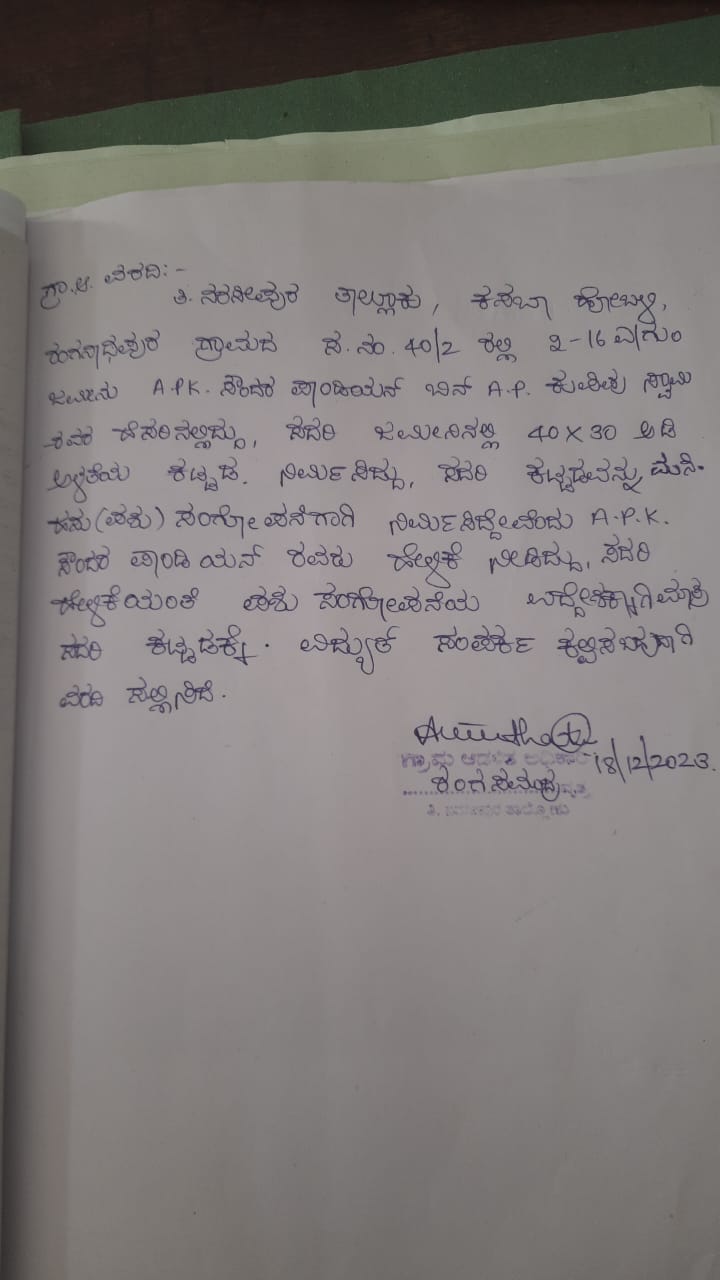 ಗ್ರಾ.ಆ. ವರದಿ:-
ತಿ. ನರಸೀಪುರ ತಾಲ್ಲೂಕು, ಕಸಬಾ ಹೋಬಳಿ,
ರಂಗನಾಥಪುರ ಗ್ರಾಮದ ಸ.ನಂ. 40/2 ರಲ್ಲಿ 2-16 ಎ/ಗುಂ
ಜಮೀನು A.P.K. ಸೌಂದರ ಪಾಂಡಿಯನ್ ಬಿನ್ A.P. ಸ್ವಾಮಿ
ರವರ ಹೆಸರಿನಲ್ಲಿದ್ದು, ಸದರಿ ಜಮೀನಿನಲ್ಲಿ 40 X 30 ಅಡಿ
ಅಳತೆಯ ಕಟ್ಟಡ. ನಿರ್ಮಿಸಿದ್ದು, ಸದರಿ ಕಟ್ಟಡವನ್ನು
(ಪಶು) ಸಂಗೋಪನೆಗಾಗಿ ನಿರ್ಮಿಸಿದ್ದೇವೆಂದು A.P.K.
ಸೌಂದರ ಪಾಂಡಿಯನ್ ರವರು ಹೇಳಿಕೆ ನೀಡಿದ್ದು, ಸದರಿ
ಹೇಳಿಕೆಯಂತೆ ಪಶು ಸಂಗೋಪನೆಯ ಉದ್ದೇಶಕ್ಕಾಗಿ ಮಾತ್ರ
ಸದರಿ ಕಟ್ಟಡಕ್ಕೆ. ವಿದ್ಯುತ್ ಸಂಪರ್ಕ ಕಲ್ಪಿಸಬಹುದಾಗಿ
ವರದಿ ಸಲ್ಲಿಸಿದೆ.
18/12/2023.
ಗ್ರಾಮ ಆಡಳಿತ ಅಧಿಕಾರಿ
ರಂಗಸಮುದ್ರ ವೃತ್ತ
ತಿ. ನರಸೀಪುರ ತಾಲ್ಲೂಕು